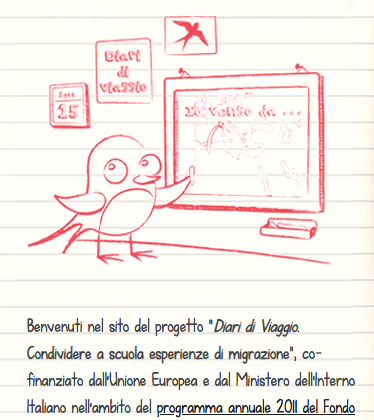 Diari
di
viaggio
Sett
15
Io vengo da ...
Benvenuti nel sito del progetto "Diari di Viaggio.
Condividere a scuola esperienze di migrazione", co-
finanziato dall'Unione Europea e dal Ministero dell'Interno
Italiano nell'ambito del programma annuale 2011 del Fondo